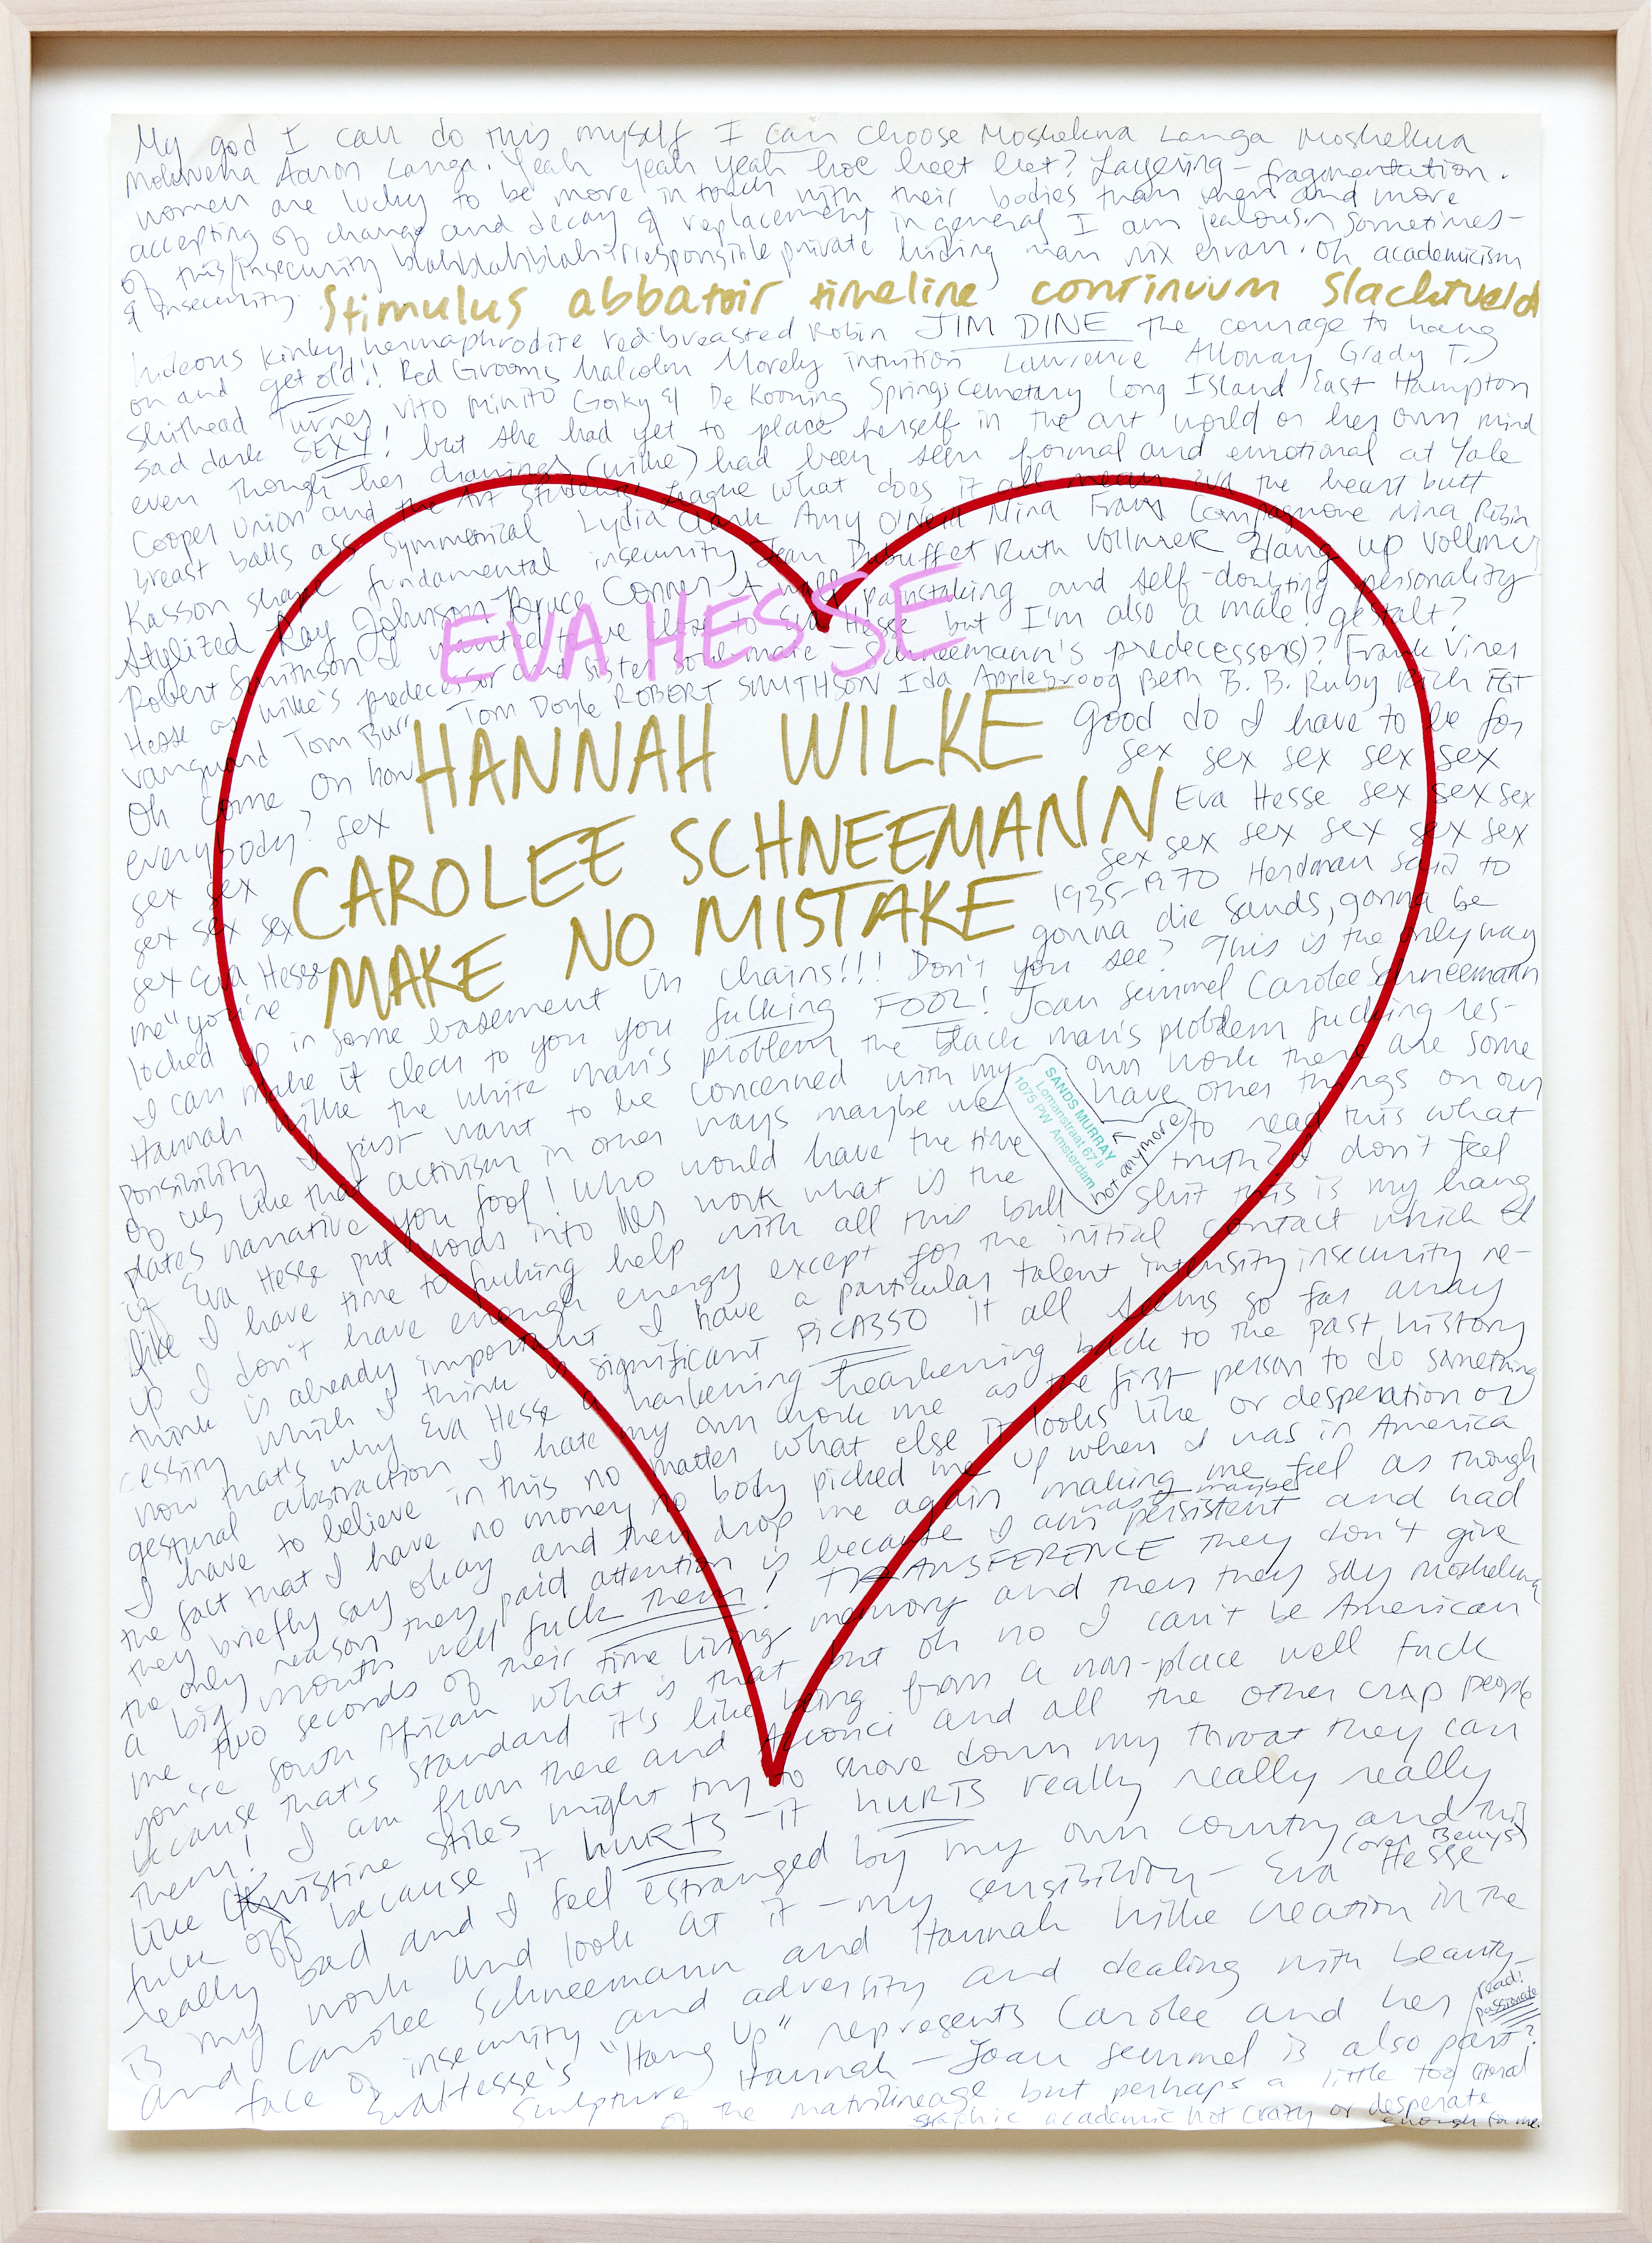 My god I can do this myself I can choose Moshekwa Langa Moshekwa
Mokwena Aaron Langa. Yeah yeah yeah hoe heet het? Layering – fragmentation.
women are lucky to be more in touch with their bodies than men and more
accepting of change and decay & replacement in general I am jealous sometimes –
of this/insecurity blahblahblah irresponsible private hiding man nix ervan. oh academicism
& insecurity.
Stimulus abbatoir timeline continuum Slachtveld
hideous kinky hermaphrodite red-breasted Robin JIM DINE the courage to hang
on and get old!! Red Grooms Malcolm Morely intuition Lawrence Alloway Grady T.
Shithead Turner Vito Minito Gorky & De Kooning Springs Cemetary Long Island East Hampton
sad dark SEXY! but she had yet to place herself in the art world or her own mind
even though her drawings (wilke) had been seen formal and emotional at Yale
Cooper Union and the Art Students' League what does it all mean Eva the heart butt
breast balls ass symmetrical Lydia Clark Amy O'Neill Nina Franz Compagnone Nina Robin
Kasson shape fundamental insecurity Jean Dubuffet Ruth Vollmer Hang up Vollmer
Stylized Ray Johnson Bruce Conner A painstaking and self-doubting personality
Robert Smithson I wanted to be close to Eva Hesse but I'm also a male! gestalt?
EVA HESSE
Hesse as Wilke's predecessor and sister soul-mate – Schneemann's predecessor(s)? Frank Viner
Vanguard Tom Burr Tom Doyle ROBERT SMITHSON Ida Applebroog Beth B. B. Ruby Rich FGT
Oh come on how HANNAH WILKE good do I have to be for
everybody? sex sex sex sex sex sex
sex sex CAROLEE SCHNEEMANN Eva Hesse sex sex sex
sex sex sex sex sex sex sex sex
sex Eva Hesse MAKE NO MISTAKE 1935–1970 Herdman said to
me "you're gonna die Sands, gonna be
locked up in some basement in chains!!! Don't you see? This is the only way
I can make it clear to you you fucking FOOL! Joan Semmel Carolee Schneemann
Hannah Wilke the white man's problem the black man's problem fucking res-
ponsibility I just want to be concerned with my own work there are some
SANDS MURRAY
Lomanstraat 67 II
1075 PW Amsterdam
not anymore
of us like that activism in other ways maybe we have other things on our
plates narrative you fool! Who would have the time to read this what
if Eva Hesse put words into her work what is the truth? I don't feel
like I have time to fucking help with all this bull shit this is my hang
up I don't have enough energy except for the initial contact which I
think is already important I have a particular talent intensity insecurity re-
cessity which I think is significant PICASSO it all seems so far away
now that's why Eva Hesse a harkening hearkening back to the past history
gestural abstraction I hate my own work me as the first person to do something
I have to believe in this no matter what else it looks like or desperation or
the fact that I have no money no body picked me up when I was in America
they briefly say okay and then drop me again making me feel as though
the only reason they paid attention is because I am persistent and had
was maybe
a big mouth well fuck them! TRANSFERENCE they don't give
me two seconds of their time living memory and then they say Moshekwa
you're South African what is that but oh no I can't be American
because that's standard it's like being from a non-place well fuck
them! I am from there and Acconci and all the other crap people
like Kristine Stiles might try to shove down my throat they can
fuck off because it HURTS – it HURTS really really really
really bad and I feel estranged by my own country and this
is my work and look at it – my sensibility – Eva Hesse
(over Beuys)
and Carolee Schneemann and Hannah Wilke creation in the
face of insecurity and adversity and dealing with beauty –
Eva Hesse's "Hang Up" represents Carolee and her
read! passionate
sculpture Hannah – Joan Semmel is also part?
of the matrilineage but perhaps a little too literal
graphic academic not crazy or desperate
enough for me.